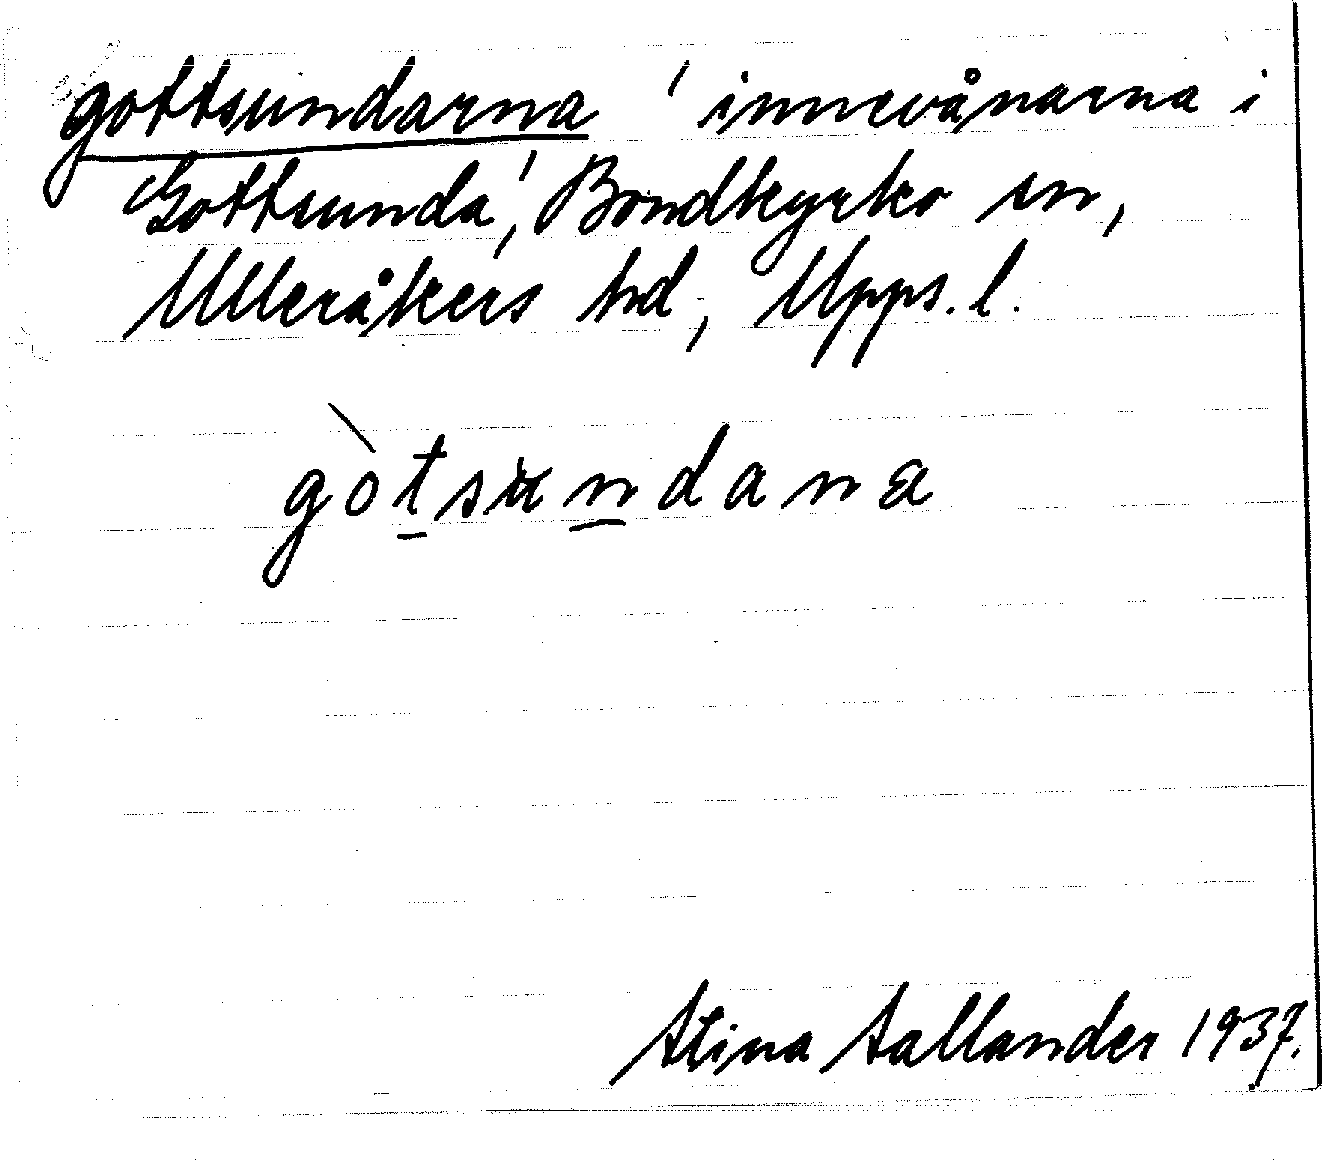 gottsundarna 'innevånarna i
Gottsunda', Bondkyrko sn,
Ulleråkers hd, Upps. l.
gòtsundana
Stina Sallander 1937.